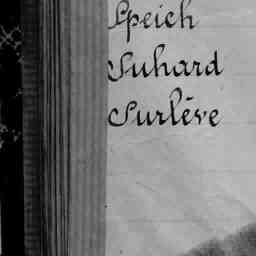 Speich
Suhard
Surlève